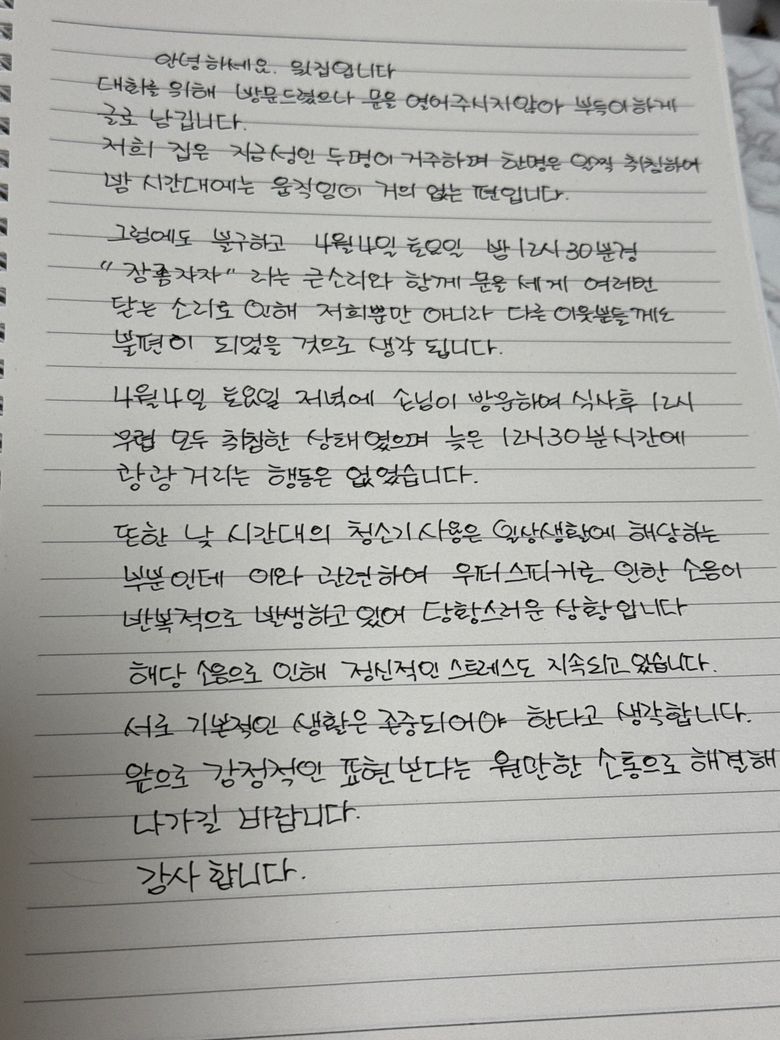 안녕하세요. 윗집입니다
대화를 위해 방문드렸으나 문을 열어주시지않아 부득이하게
글로 남깁니다.
저희 집은 지금성인 두명이 거주하며 한명은 일찍 취침하여
밤 시간대에는 움직임이 거의 없는 편입니다.
그럼에도 불구하고 4월4일 토요일 밤 12시 30분경
"잠좀자자" 라는 큰소리와 함께 문을 세게 여러번
닫는 소리로 인해 저희뿐만 아니라 다른 이웃분들께도
불편이 되었을 것으로 생각 됩니다.
4월4일 토요일 저녁에 손님이 방문하여 식사후 12시
무렵 모두 취침한 상태였으며 늦은 12시30분시간에
쾅쾅거리는 행동은 없었습니다.
또한 낮 시간대의 청소기사용은 일상생활에 해당하는
부분인데 이와 관련하여 우퍼스피커로 인한 소음이
반복적으로 발생하고있어 당황스러운 상황입니다
해당 소음으로 인해 정신적인 스트레스도 지속되고있습니다.
서로 기본적인 생활은 존중되어야 한다고 생각합니다.
앞으로 감정적인 표현보다는 원만한 소통으로 해결해
나가길 바랍니다.
감사합니다.